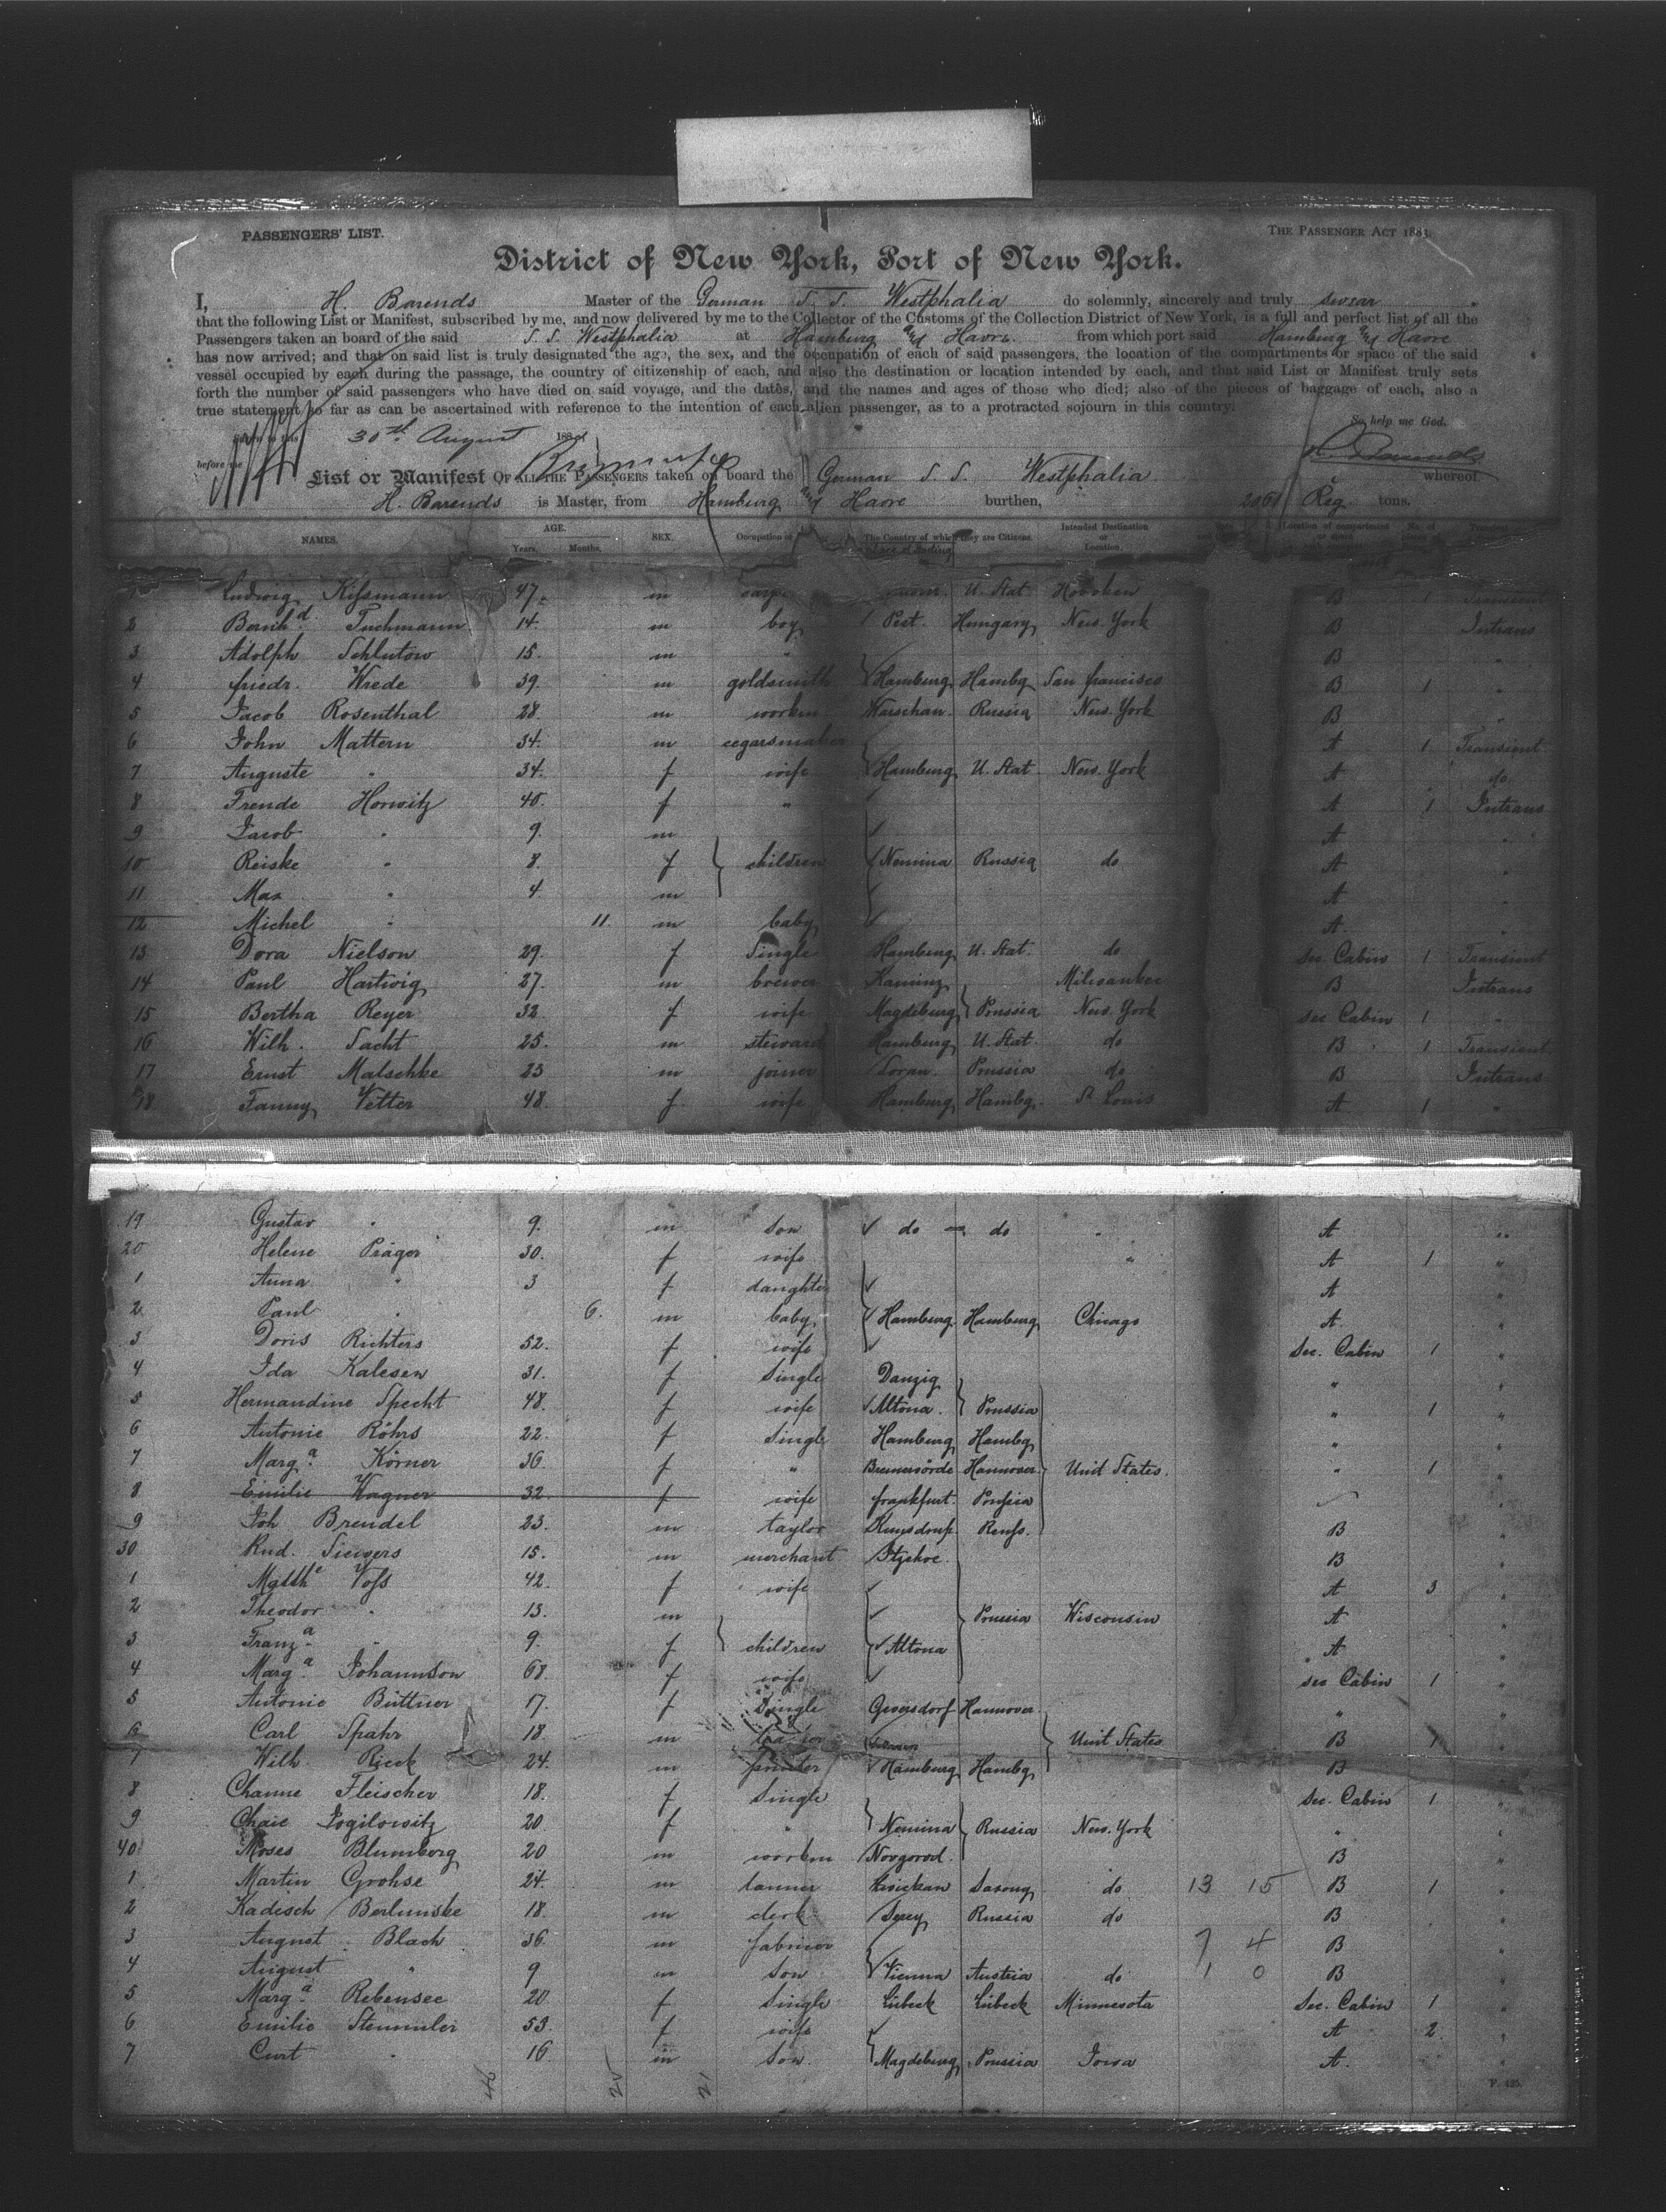 PASSENGERS' LIST.
THE PASSENGER ACT 1883.
District of New York, Port of New York.
I, H. Barends Master of the German S. S. Westphalia do solemnly, sincerely and truly swear
that the following List or Manifest, subscribed by me, and now delivered by me to the Collector of the Customs of the Collection District of New York, is a full and perfect list of all the
Passengers taken on board of the said S. S. Westphalia at Hamburg and Havre from which port said Hamburg and Havre
has now arrived; and that on said list is truly designated the age, the sex, and the occupation of each of said passengers, the location of the compartments or space of the said
vessel occupied by each during the passage, the country of citizenship of each, and also the destination or location intended by each, and that said List or Manifest truly sets
forth the number of said passengers who have died on said voyage, and the dates, and the names and ages of those who died; also of the pieces of baggage of each, also a
true statement so far as can be ascertained with reference to the intention of each alien passenger, as to a protracted sojourn in this country.
So help me God.
30th August 188
before me
List or Manifest OF ALL THE PASSENGERS taken on board the German S. S. Westphalia whereof
H. Barends is Master, from Hamburg and Havre burthen, Reg tons.
NAMES. AGE. Years. Months. SEX. Occupation The Country of which they are Citizens. Intended Destination or Location. Location of compartment
Ludwig Kissmann 47. m U. Stat Hoboken B 1 Transient
2 Bernhd. Tuchmann 14. m boy Pest. Hungary New York B Intrans
3 Adolph Schlutow 15. m " B "
4 friedr. Wrede 39. m goldsmith Hamburg Hambg San francisco B 1 "
5 Jacob Rosenthal 28. m workm Warschau Russia New York B "
6 John Mattern 34. m cegarsmaker A 1 Transient
7 Auguste " 34. f wife Hamburg U. Stat New York A do
8 Frende Horwitz 40. f " A 1 Intrans
9 Jacob " 9. m A "
10 Reiske " 8. f children Nemina Russia do A "
11 Max " 4. m A "
12 Michel " 11. m baby A. "
13 Dora Nielson 29. f Single Hamburg U. Stat. do sec. Cabin 1 Transient
14 Paul Hartwig 27. m brewer Kaminz Milwaukee B Intrans
15 Bertha Reyer 32. f wife Magdeburg Prussia New York sec Cabin 1 "
16 Wilh. Sacht 25. m steward Hamburg U. Stat. do B 1 Transient
17 Ernst Malschke 23 m joiner Soran. Prussia do B Intrans
18 Fanny Vetter 48. f. wife Hamburg Hambg. St. Louis A 1 "
19 Gustav " 9. m son do do " A "
20 Helene Präger 30. f wife " A 1 "
1 Anna " 3 f daughter A "
2 Paul " 6. m baby Hamburg Hamburg Chicago A. "
3 Doris Richters 52. f wife Sec. Cabin 1 "
4 Ida Kalesen 31. f Single Danzig " "
5 Hermandine Specht 48. f wife Altona. Prussia " 1 "
6 Antonie Röhrs 22. f Single Hamburg Hambg " "
7 Marga. Körner 36. f " Bremervörde Hannover Unit States. " 1 "
8 Emilie Wagner 32. f wife frankfurt. Prussia "
9 Joh Brendel 23. m taylor Reuss. B "
30 Rud. Siewers 15. m merchant Itzehoe. B "
1 Mathe Voss 42. f wife A 3 "
2 Theodor " 13. m Prussia Wisconsin A "
3 Franza. " 9. f children Altona A "
4 Marga. Johannson 68. f wife sec Cabin 1 "
5 Antonie Büttner 17. f Single Hannover. " "
6 Carl Spahr 18. m Unit States B 1 "
7 Wilh. Rieck 24. m printer Hamburg Hambg B "
8 Channe Fleischer 18. f Single Sec. Cabin 1 "
9 Chaie Jogilowitz 20. f " Nemina Russia New York " "
40 Moses Blumberg 20 m workm Novgorod. B "
1 Martin Grohse 24. m tanner Zwickau Saxony do 13 15 B 1 "
2 Kadisch Berlinske 18. m clerk Serey Russia do B "
3 August Blach 36. m fabricer 7 4 B "
4 August " 9 m son Vienna Austria do 1 0 B "
5 Marga. Rebensee 20. f Single Lübeck Lübeck Minnesota Sec. Cabin 1 "
6 Emilie Stemmler 53. f wife A 2 "
7 Curt " 16. m Son. Magdeburg Prussia Iowa A. "